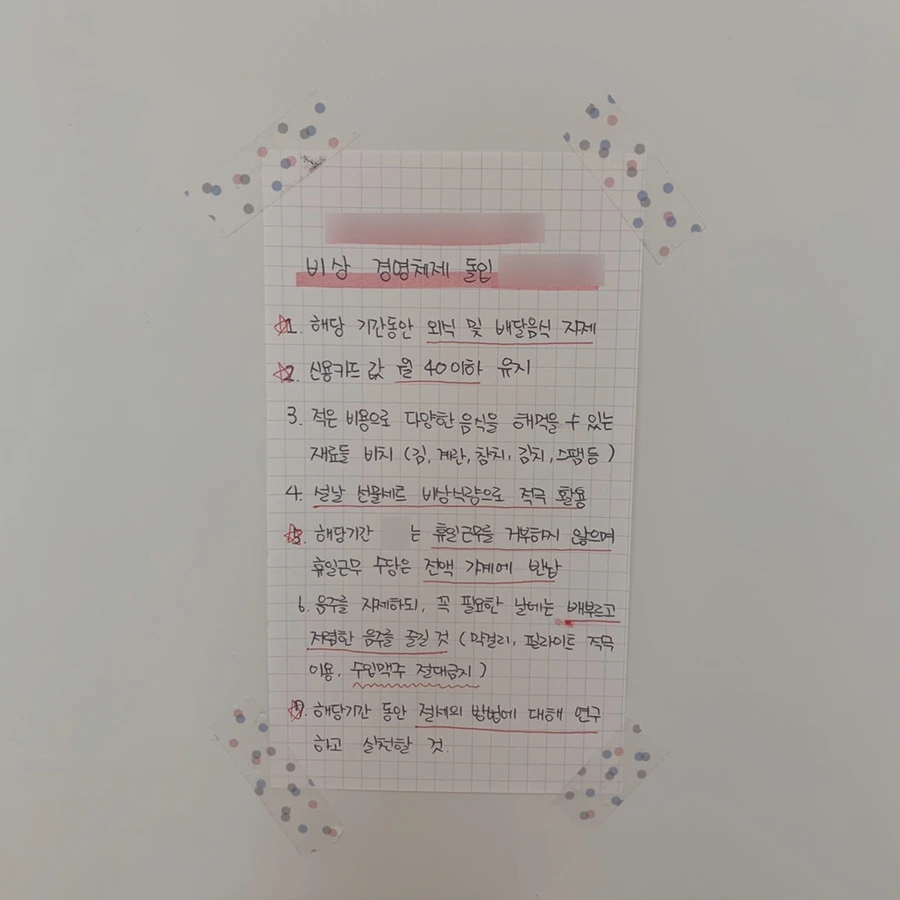 비상 경영체제 돌입
1. 해당 기간동안 외식 및 배달음식 자제
2. 신용카드 값 월 40이하 유지
3. 적은 비용으로 다양한 음식을 해먹을 수 있는
재료들 비치 (김, 계란, 참치, 김치, 스팸등)
4. 설날 선물세트 비상식량으로 적극 활용
5. 해당기간 는 휴일근무를 거부하지 않으며
휴일근무 수당은 전액 가계에 반납
6. 음주를 자제하되, 꼭 필요한 날에는 배부르고
저렴한 음주를 즐길 것 (막걸리, 필라이트 적극
이용. 수입맥주 절대금지)
7. 해당기간 동안 절세의 방법에 대해 연구
하고 실천할 것.